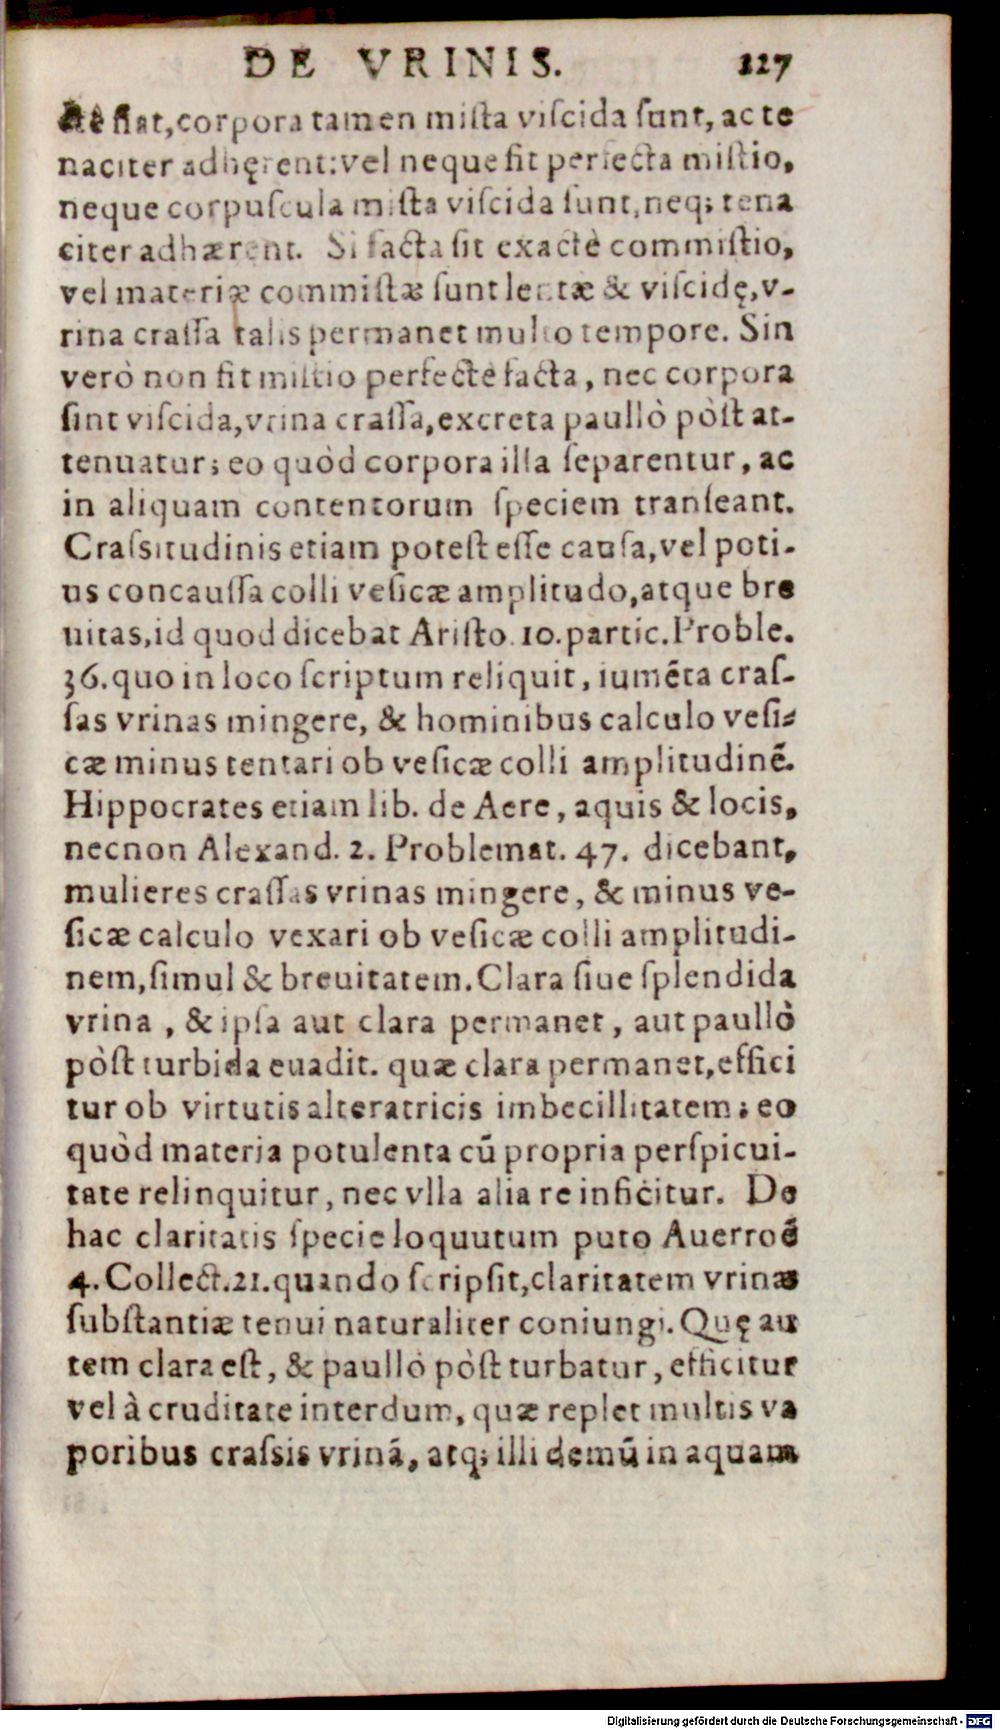 DE VRINIS. 127
fiat, corpora tamen mista viscida sunt, ac te
naciter adhęrent: vel neque fit perfecta mistio,
neque corpuscula mista viscida sunt, neq; tena
citer adhærent. Si facta sit exactè commistio,
vel materiæ commistæ sunt lentæ & viscidę, v-
rina crassa talis permanet multo tempore. Sin
verò non fit mistio perfectè facta, nec corpora
sint viscida, vrina crassa, excreta paullò pòst at-
tenuatur; eo quòd corpora illa separentur, ac
in aliquam contentorum speciem transeant.
Crassitudinis etiam potest esse causa, vel poti-
us concaussa colli vesicæ amplitudo, atque bre
uitas, id quod dicebat Aristo. 10. partic. Proble.
36. quo in loco scriptum reliquit, iumēta cras-
sas vrinas mingere, & hominibus calculo vesi-
cæ minus tentari ob vesicæ colli amplitudinē.
Hippocrates etiam lib. de Aere, aquis & locis,
necnon Alexand. 2. Problemat. 47. dicebant,
mulieres crassas vrinas mingere, & minus ve-
sicæ calculo vexari ob vesicæ colli amplitudi-
nem, simul & breuitatem. Clara siue splendida
vrina, & ipsa aut clara permanet, aut paullò
pòst turbida euadit. quæ clara permanet, effici
tur ob virtutis alteratricis imbecillitatem; eo
quòd materia potulenta cū propria perspicui-
tate relinquitur, nec vlla alia re inficitur. De
hac claritatis specie loquutum puto Auerroē
4. Collect. 21. quando scripsit, claritatem vrinæ
substantiæ tenui naturaliter coniungi. Quę au
tem clara est, & paullò pòst turbatur, efficitur
vel à cruditate interdum, quæ replet multis va
poribus crassis vrinā, atq; illi demū in aquam
Digitalisierung gefördert durch die Deutsche Forschungsgemeinschaft - DFG